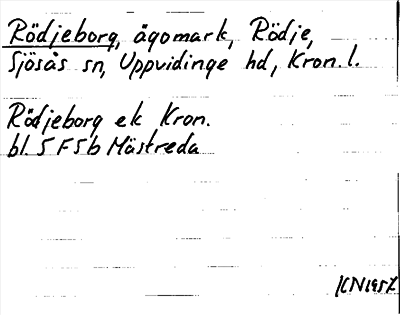 Rödjeborg, ägomark, Rödje,
Sjösås sn, Uppvidinge hd, Kron. l.
Rödjeborg ek Kron.
bl. 5F5b Mästreda
KN1957